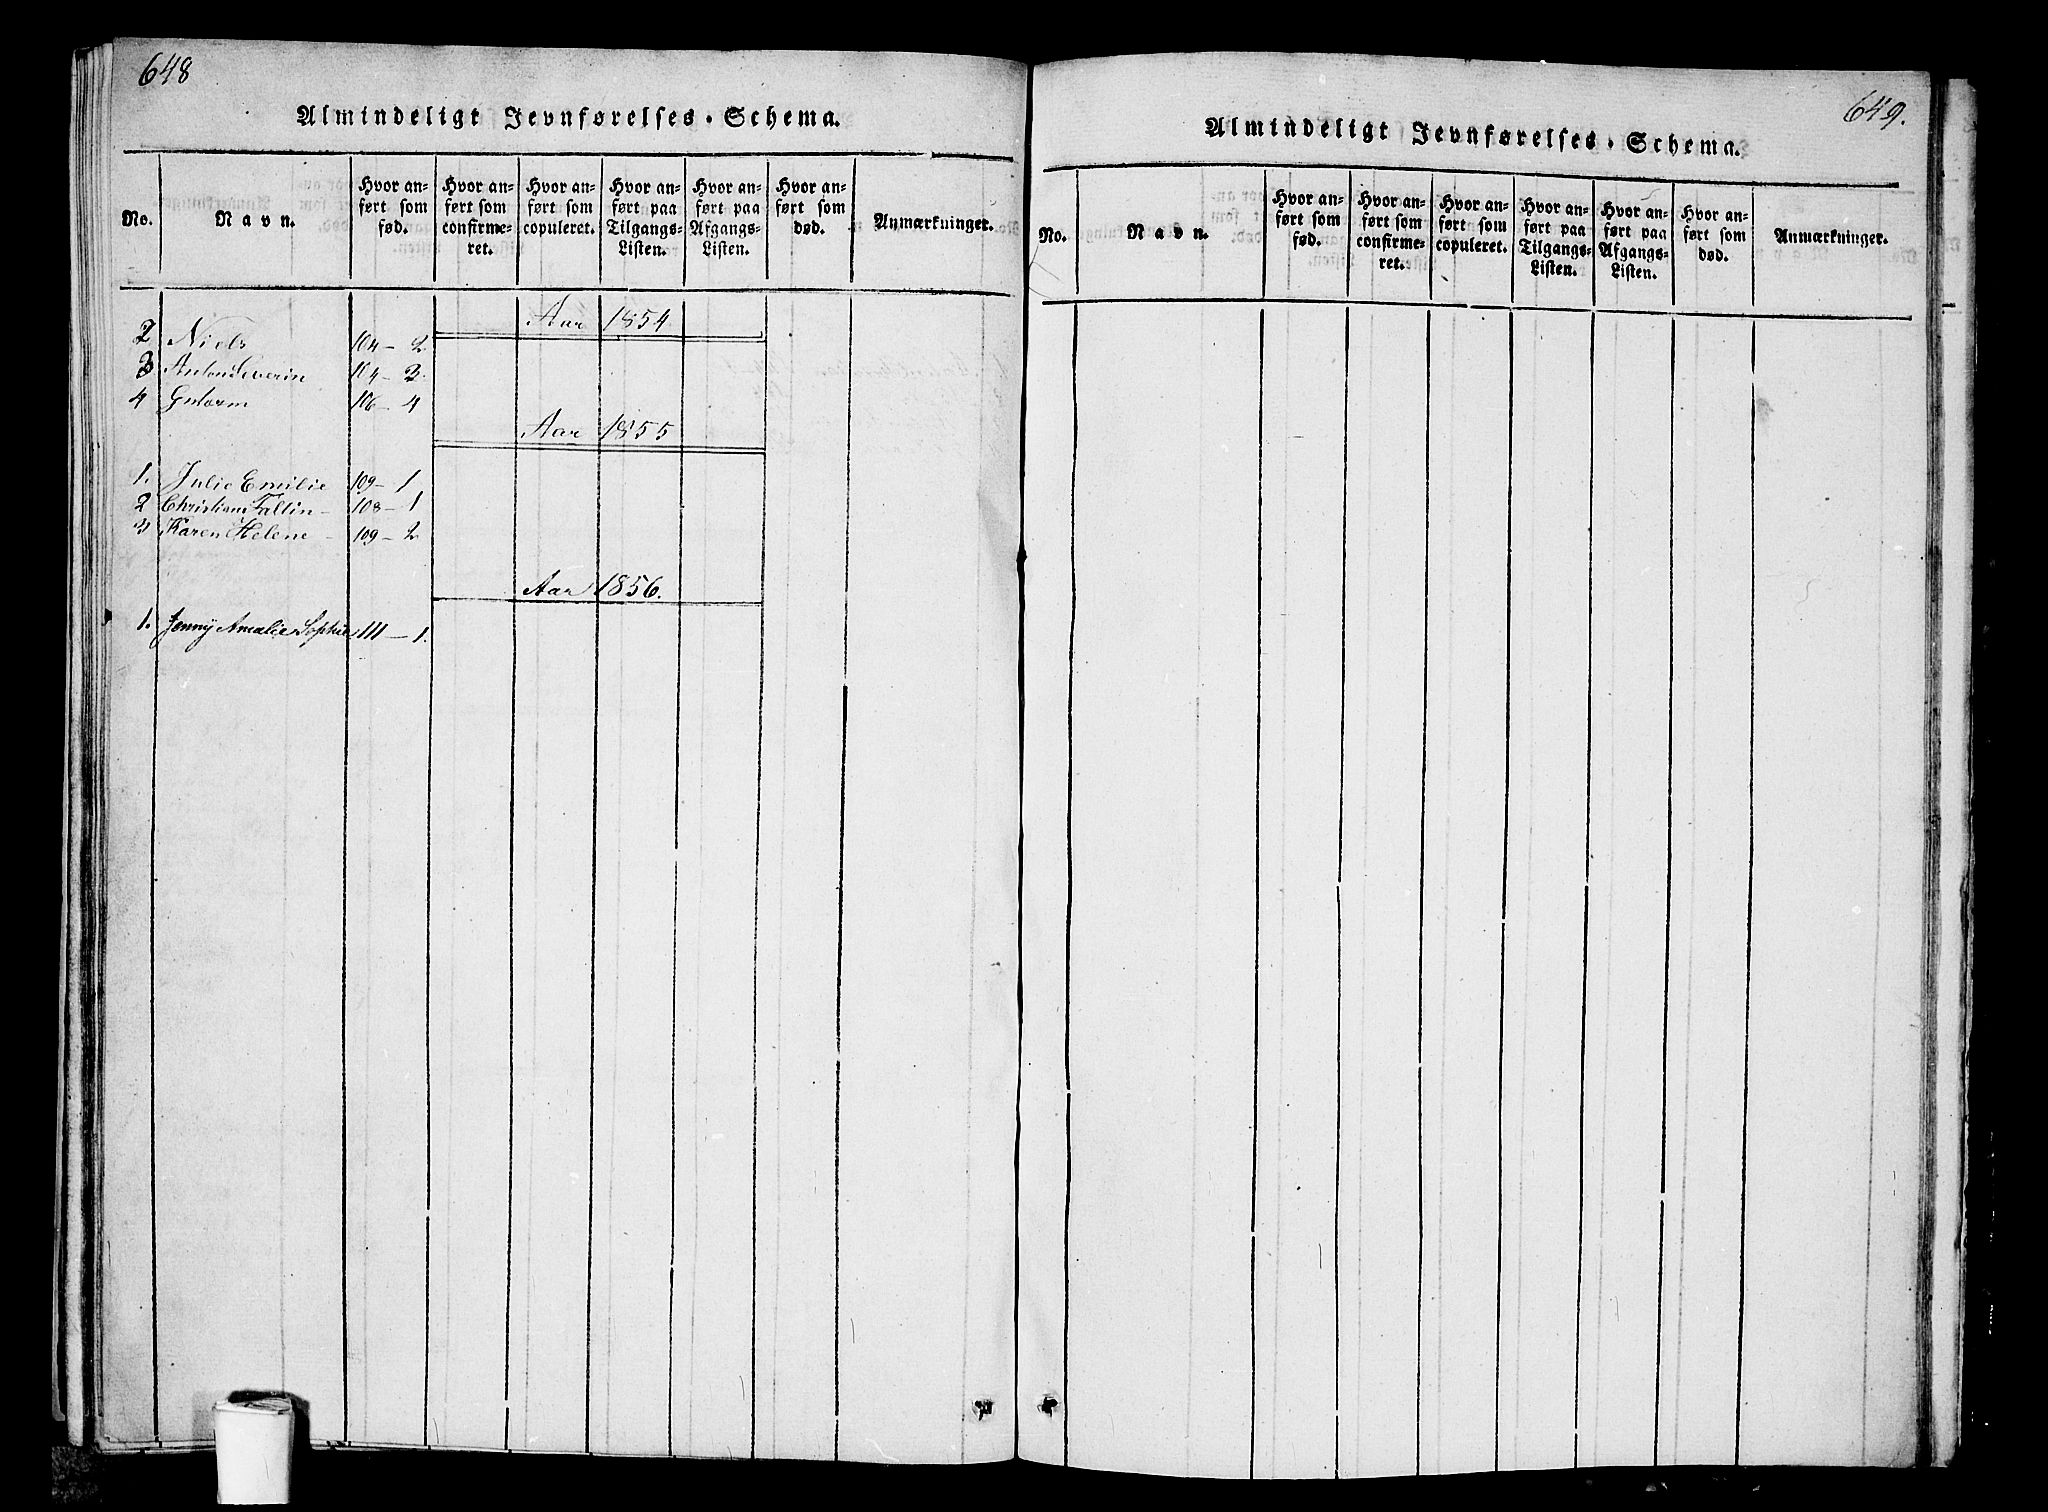 648
Almindeligt Jevnførelses-Schema.
No.
Navn.
Hvor anført som fød.
Hvor anført som confirmeret.
Hvor anført som copuleret.
Hvor anført paa Tilgangs-Listen.
Hvor anført paa Afgangs-Listen.
Hvor anført som død.
Anmærkninger.
Aar 1854
2 Niels 104 - 2
3 Anton Severin 104 - 3.
4 Gutorm 106 - 4
Aar 1855
1. Julie Emilie 109 - 1
2 Christians Faltin - 108 - 1
3 Karen Helene - 109 - 2
Aar 1856.
1. Jenny Amalie Sophie 111 - 1.
649.
Almindeligt Jevnførelses-Schema.
No.
Navn.
Hvor anført som fød.
Hvor anført som confirmeret.
Hvor anført som copuleret.
Hvor anført paa Tilgangs-Listen.
Hvor anført paa Afgangs-Listen.
Hvor anført som død.
Anmærkninger.